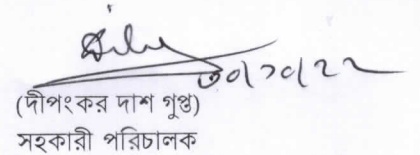 ৩০/১০/২২
(দীপংকর দাশ গুপ্ত)
সহকারী পরিচালক